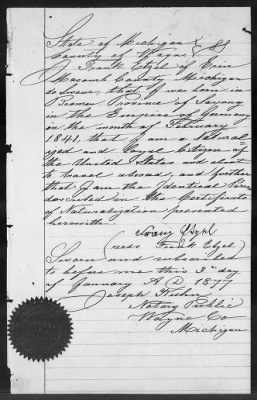 State of Michigan } SS
County of Wayne }
I Frank Etzel of Erin
Macomb County Michigan
do swear, that I was born in
Province of
in the Empire of Germany
in the month of February
1841, that I am a Natural-
ized and Loyal Citizen of
the United States and about
to travel abroad, and further
that I am the identical Person
described in the Certificate
of Naturalization presented
herewith
Franz Etzel
(reads Frank Etzel)
Sworn and subscribed
to before me this 3d day
of January A D 1877
Joseph Kuhn
Notary Public
Wayne Co
Michigan